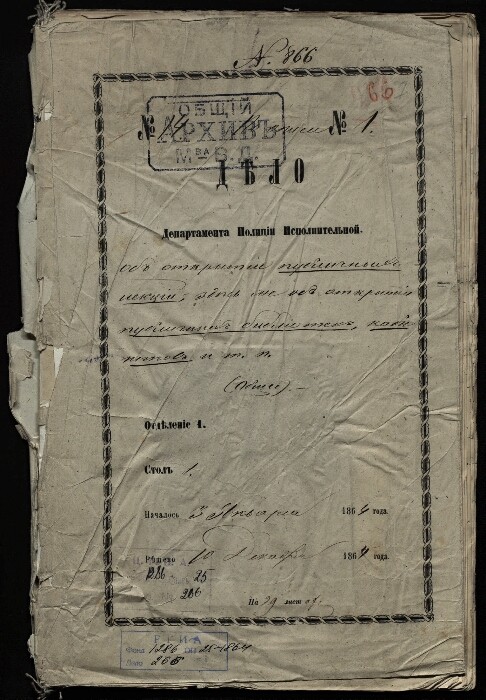 N. 866
66
ОБЩІЙ
АРХИВЪ
М-В.Д.
№ 14 № 1.
ДѢЛО
Департамента Полиціи Исполнительной.
объ открытіи публичныхъ
лекцій, здѣсь же объ открытіи
публичныхъ библіотекъ, каби-
нетовъ и т. п.
(Общее)
Отдѣленіе 1.
Столъ 1.
Началось 3 Января 1864 года.
Рѣшено 10 Декабря 1864 года.
1286 25
266
На 29 листах
Р Г И А
Фонд 1286 оп. 25-1864
Дело 266